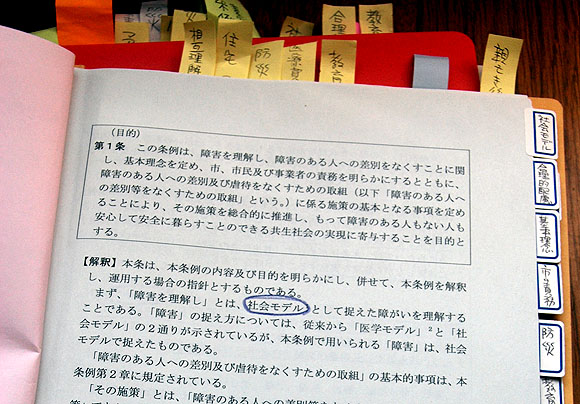 防災
相互理解
住宅
防災
教育
合理
教育
親亡き後
(目的)
第1条 この条例は、障害を理解し、障害のある人への差別をなくすことに関
し、基本理念を定め、市、市民及び事業者の責務を明らかにするとともに、
障害のある人への差別及び虐待をなくすための取組(以下「障害のある人へ
の差別等をなくすための取組」という。)に係る施策の基本となる事項を定め
ることにより、その施策を総合的に推進し、もって障害のある人もない人も
安心して安全に暮らすことのできる共生社会の実現に寄与することを目的と
する。
【解釈】本条は、本条例の内容及び目的を明らかにし、併せて、本条例を解釈
し、運用する場合の指針とするものである。
まず、「障害を理解し」とは、社会モデルとして捉えた障がいを理解する
ことである。「障害」の捉え方については、従来から「医学モデル」2と「社
会モデル」の2通りが示されているが、本条例で用いられる「障害」は、社会
モデルで捉えたものである。
「障害のある人への差別及び虐待をなくすための取組」の基本的事項は、本
条例第2章に規定されている。
「その施策」とは、「障害のある人への差別等をなく
社会モデル
合理的配慮
基本理念
市の責務
防災